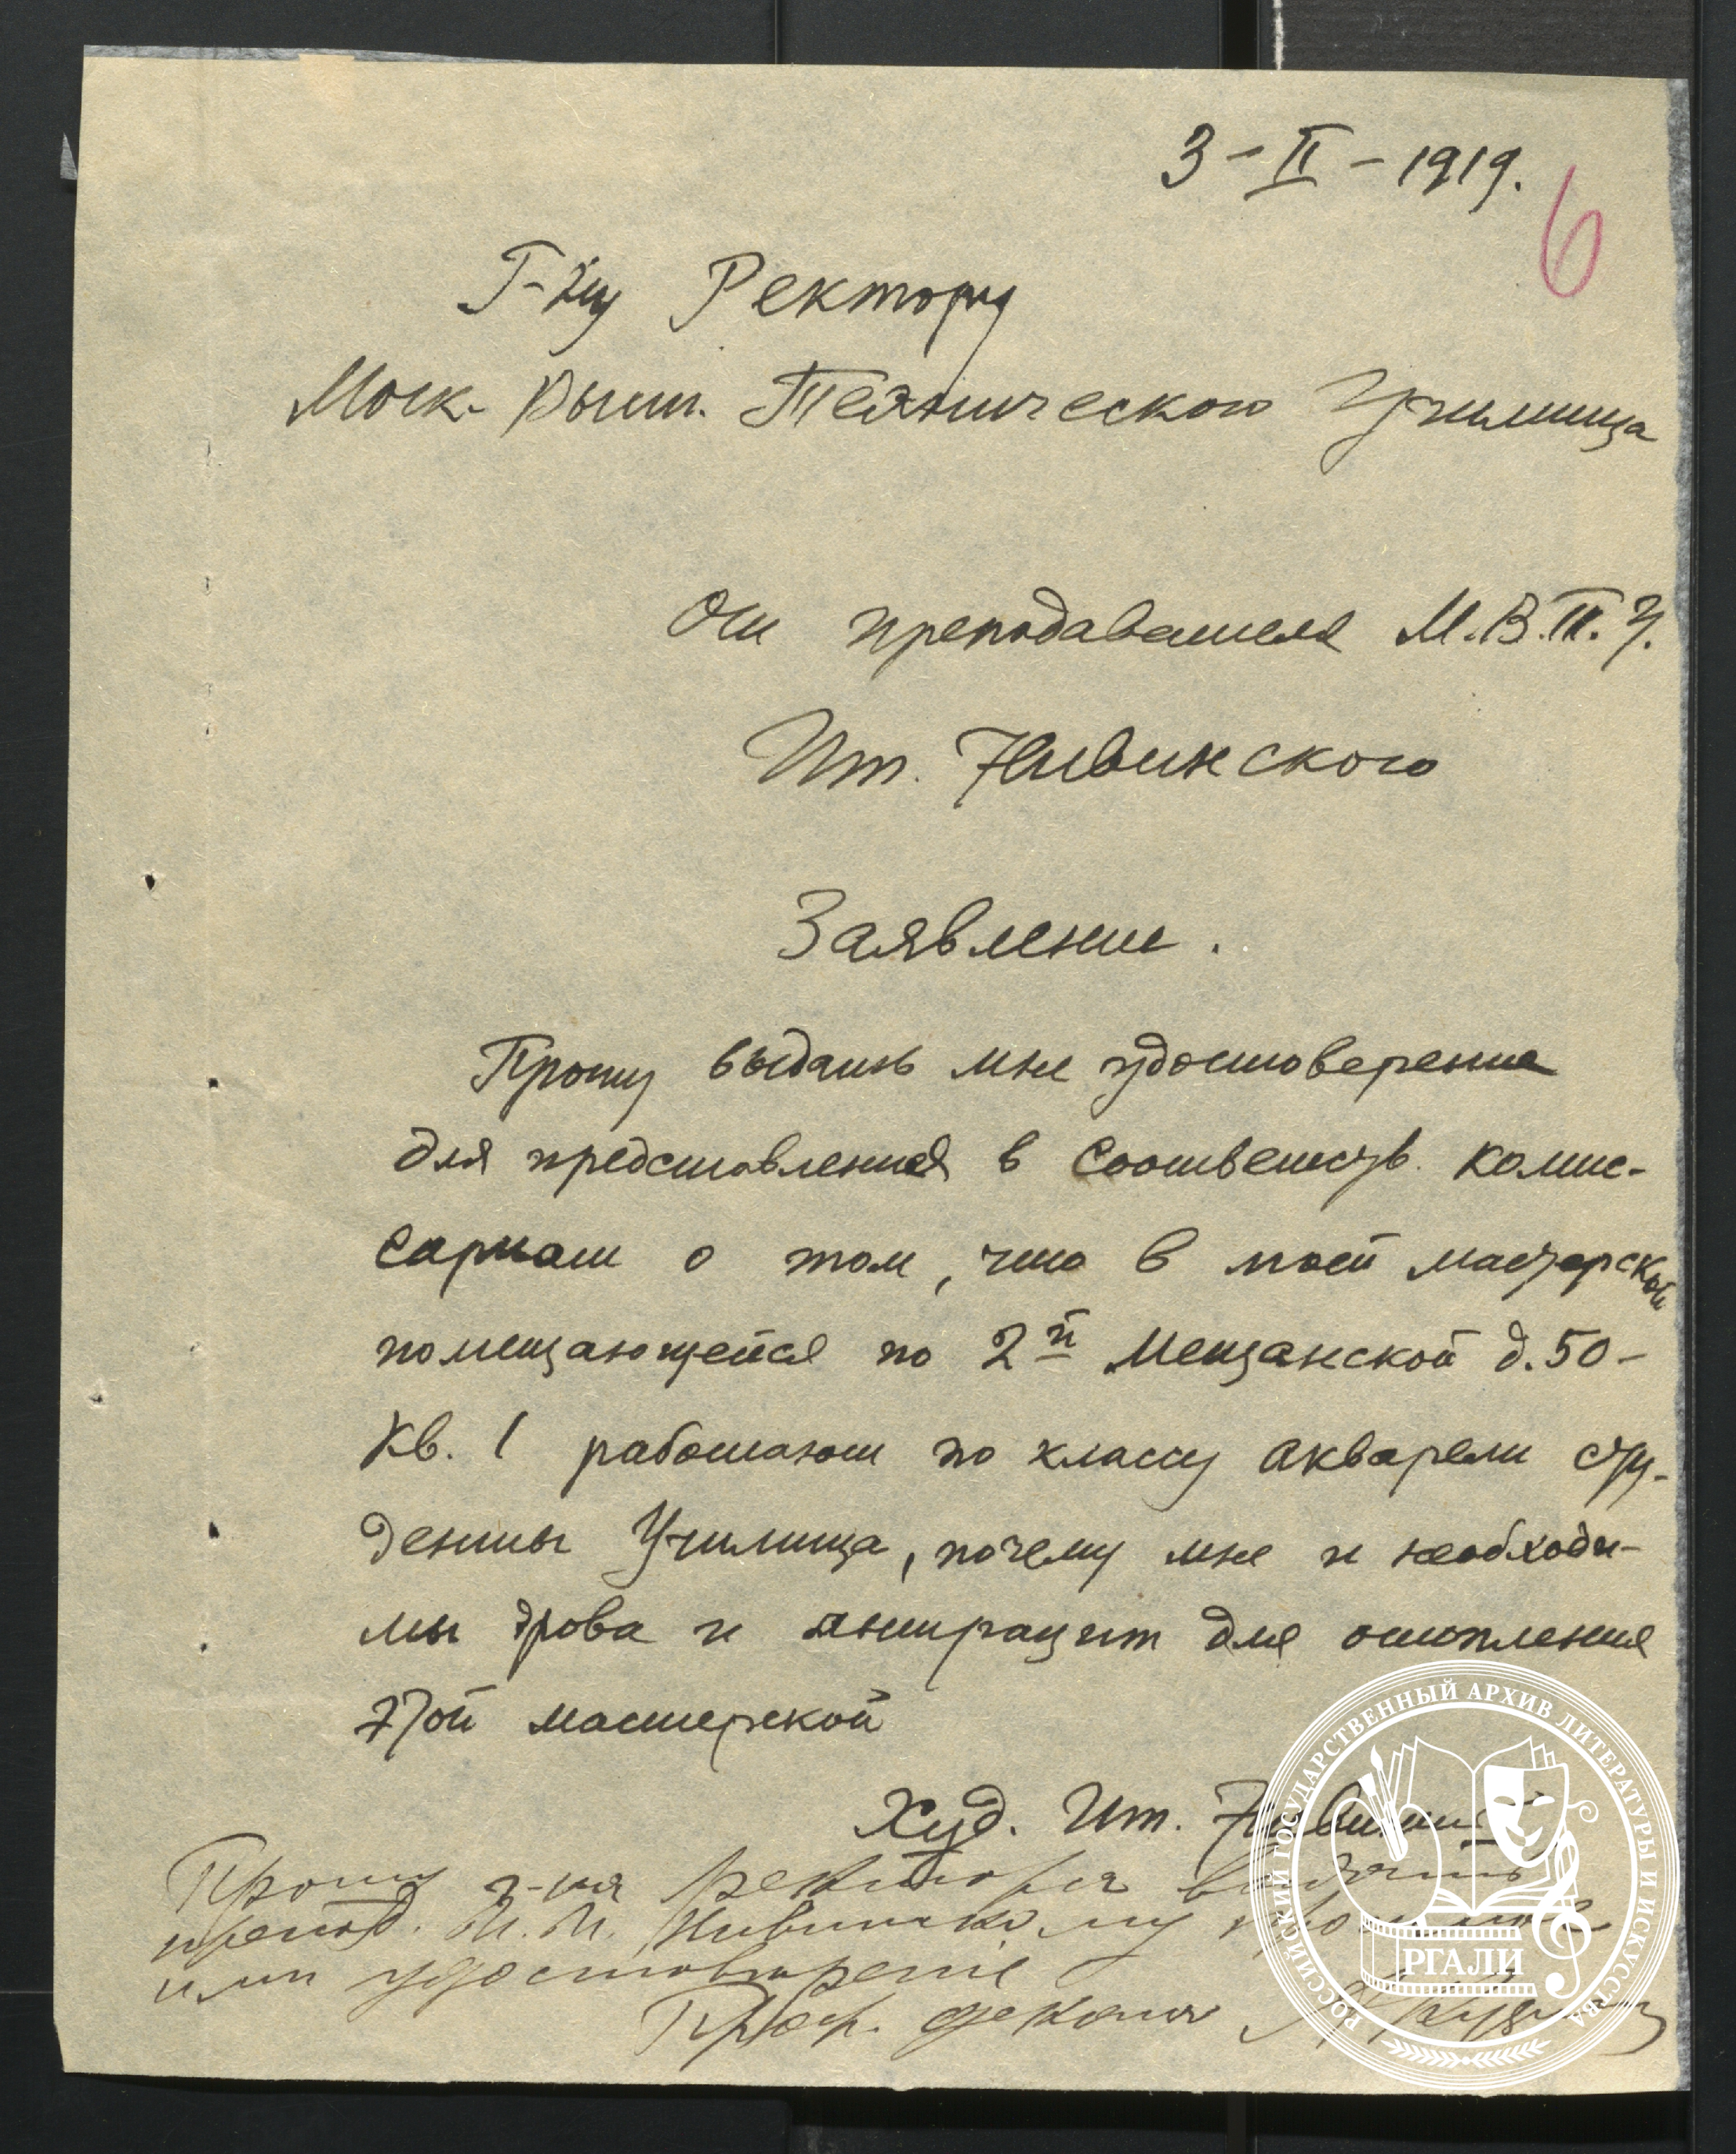 3-II-1919.
6
Г-ну Ректору
Моск. Высш. Технического Училища
От преподавателя М.В.Т.У.
Иг. Нивинского
Заявление.
Прошу выдать мне удостоверение
для представления в соответств. комис-
сариат о том, что в моей мастерской
помещающейся по 2й Мещанской д. 50-
кв. 1 работают по классу акварели сту-
денты Училища, почему мне и необходи-
мы дрова и антрацит для отопления
этой мастерской
Худ. Иг. Нивинский
Прошу г-на ректора выдать
препод. И.И. Нивинскому просимое
им удостоверение
Проф. декан
РОССИЙСКИЙ ГОСУДАРСТВЕННЫЙ АРХИВ ЛИТЕРАТУРЫ И ИСКУССТВА
РГАЛИ